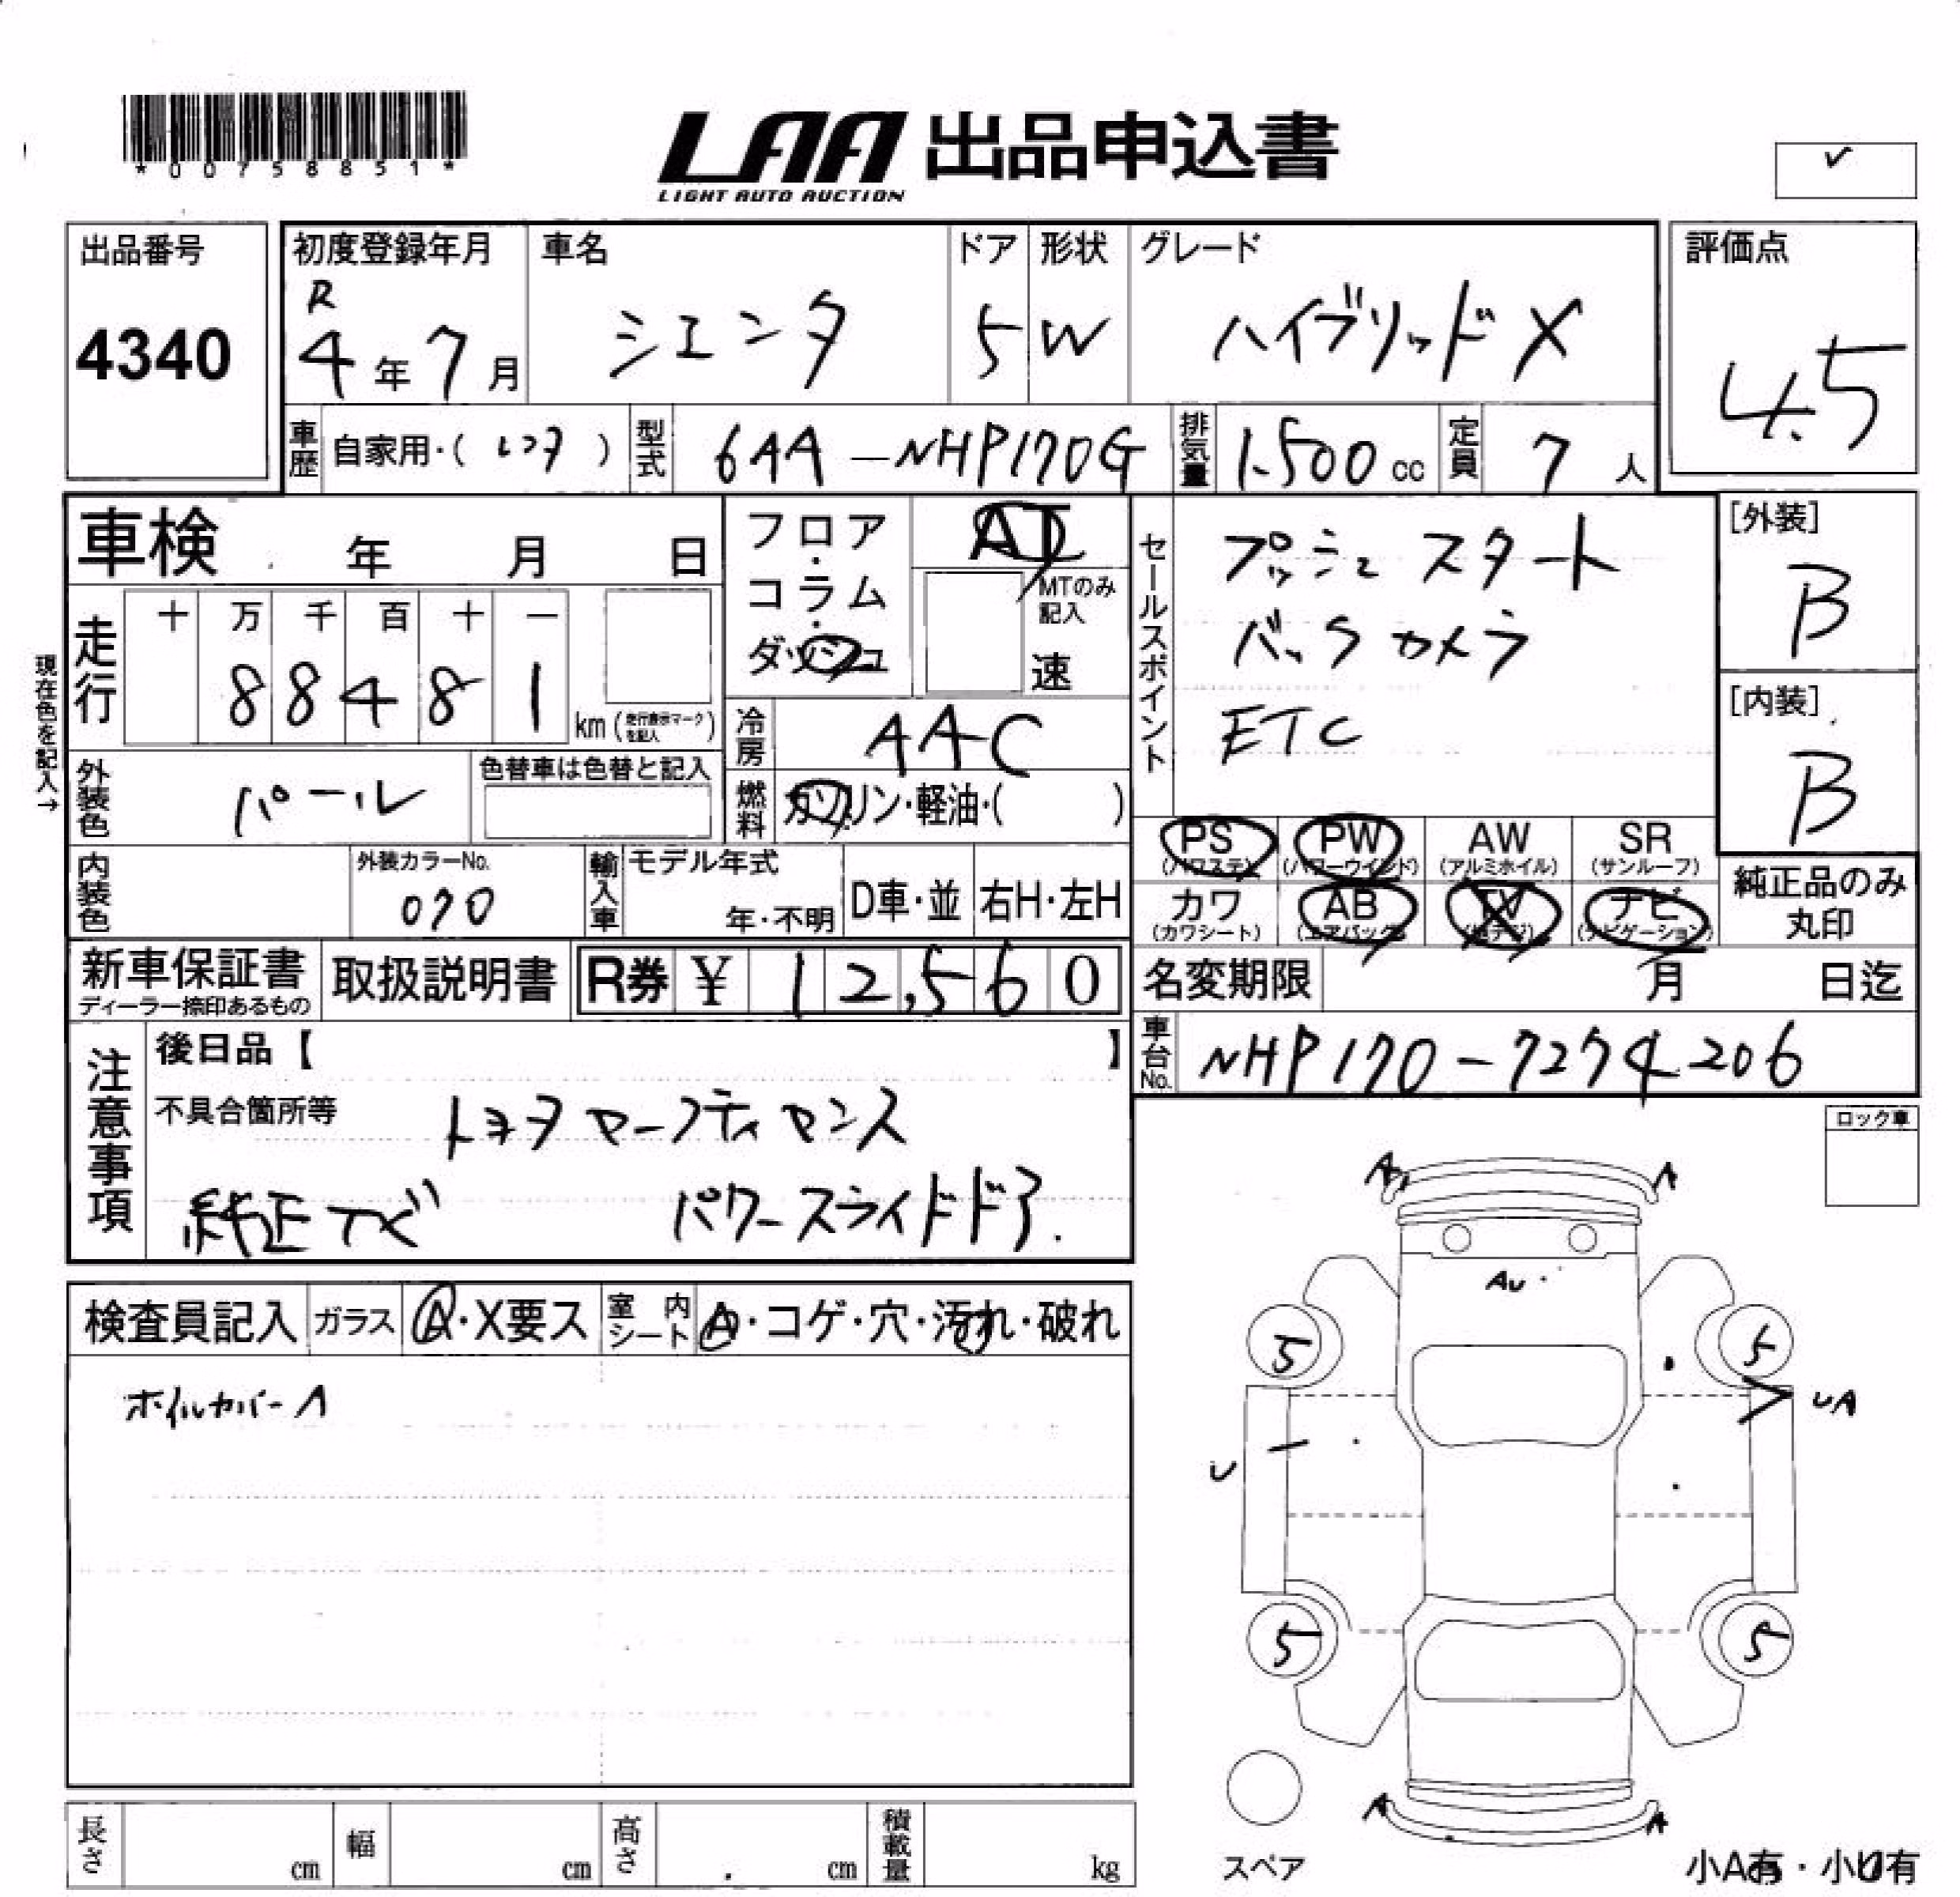 *00758851*
LAA 出品申込書
LIGHT AUTO AUCTION
✓
出品番号
4340
初度登録年月
R
4年7月
車名
シエンタ
ドア
5
形状
W
グレード
ハイブリッドX
評価点
4.5
車歴
自家用・(レンタ)
型式
6AA-NHP170G
排気量
1.500cc
定員
7人
車検 年 月 日
走行
十 万 千 百 十 一
8 8 4 8 1
km(走行表示マークを記入)
現在色を記入→
外装色
パール
色替車は色替と記入
内装色
外装カラーNo.
070
輸入車
モデル年式
年・不明
D車・並
右H・左H
フロア・コラム・ダッシュ
AT
MTのみ記入
速
冷房
AAC
燃料
ガソリン・軽油・( )
セールスポイント
プッシュスタート
バックカメラ
ETC
[外装]
B
[内装]
B
PS (パワステ)
PW (パワーウインド)
AW (アルミホイル)
SR (サンルーフ)
カワ (カワシート)
AB (エアバック)
TV (地デジ)
ナビ (ナビゲーション)
純正品のみ丸印
新車保証書
ディーラー捺印あるもの
取扱説明書
R券 ¥ 12,560
名変期限 月 日迄
車台No.
NHP170-7274206
注意事項
後日品【 】
不具合箇所等
トヨタマーフティセンス
純正ナビ パワースライドドア.
ロック車
検査員記入
ガラス
A・X要ス
室内シート
A・コゲ・穴・汚れ・破れ
ホイルカバーA
A A
AU
5 5
UA
U
5 5
A A
スペア
小A有・小U有
長さ cm
幅 cm
高さ cm
積載量 kg